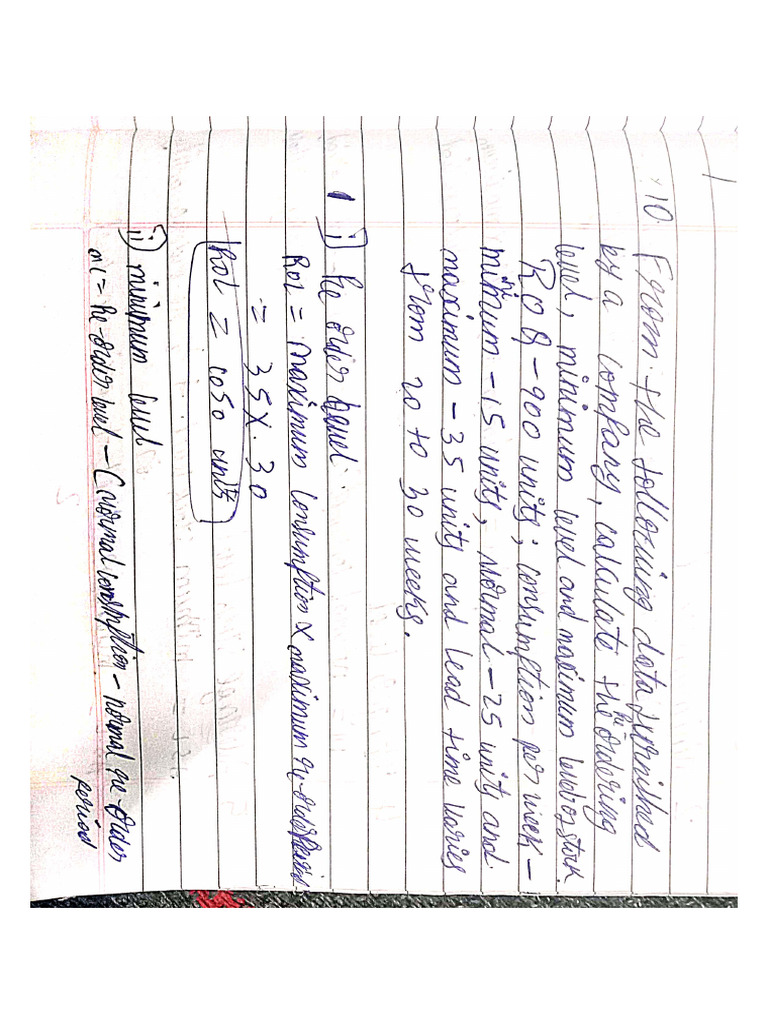 10. From the following data furnished
by a company, calculate the re-ordering
level, minimum level and maximum level of stock
ROQ - 900 units; consumption per week -
minimum - 15 units, normal - 25 units and
maximum - 35 units and lead time varies
from 20 to 30 weeks.
i) Re order level.
ROL = Maximum consumption x maximum re-order period
= 35 X 30
ROL = 1050 units
ii) minimum level
ML = Re-order level - (normal consumption - normal re-order
period